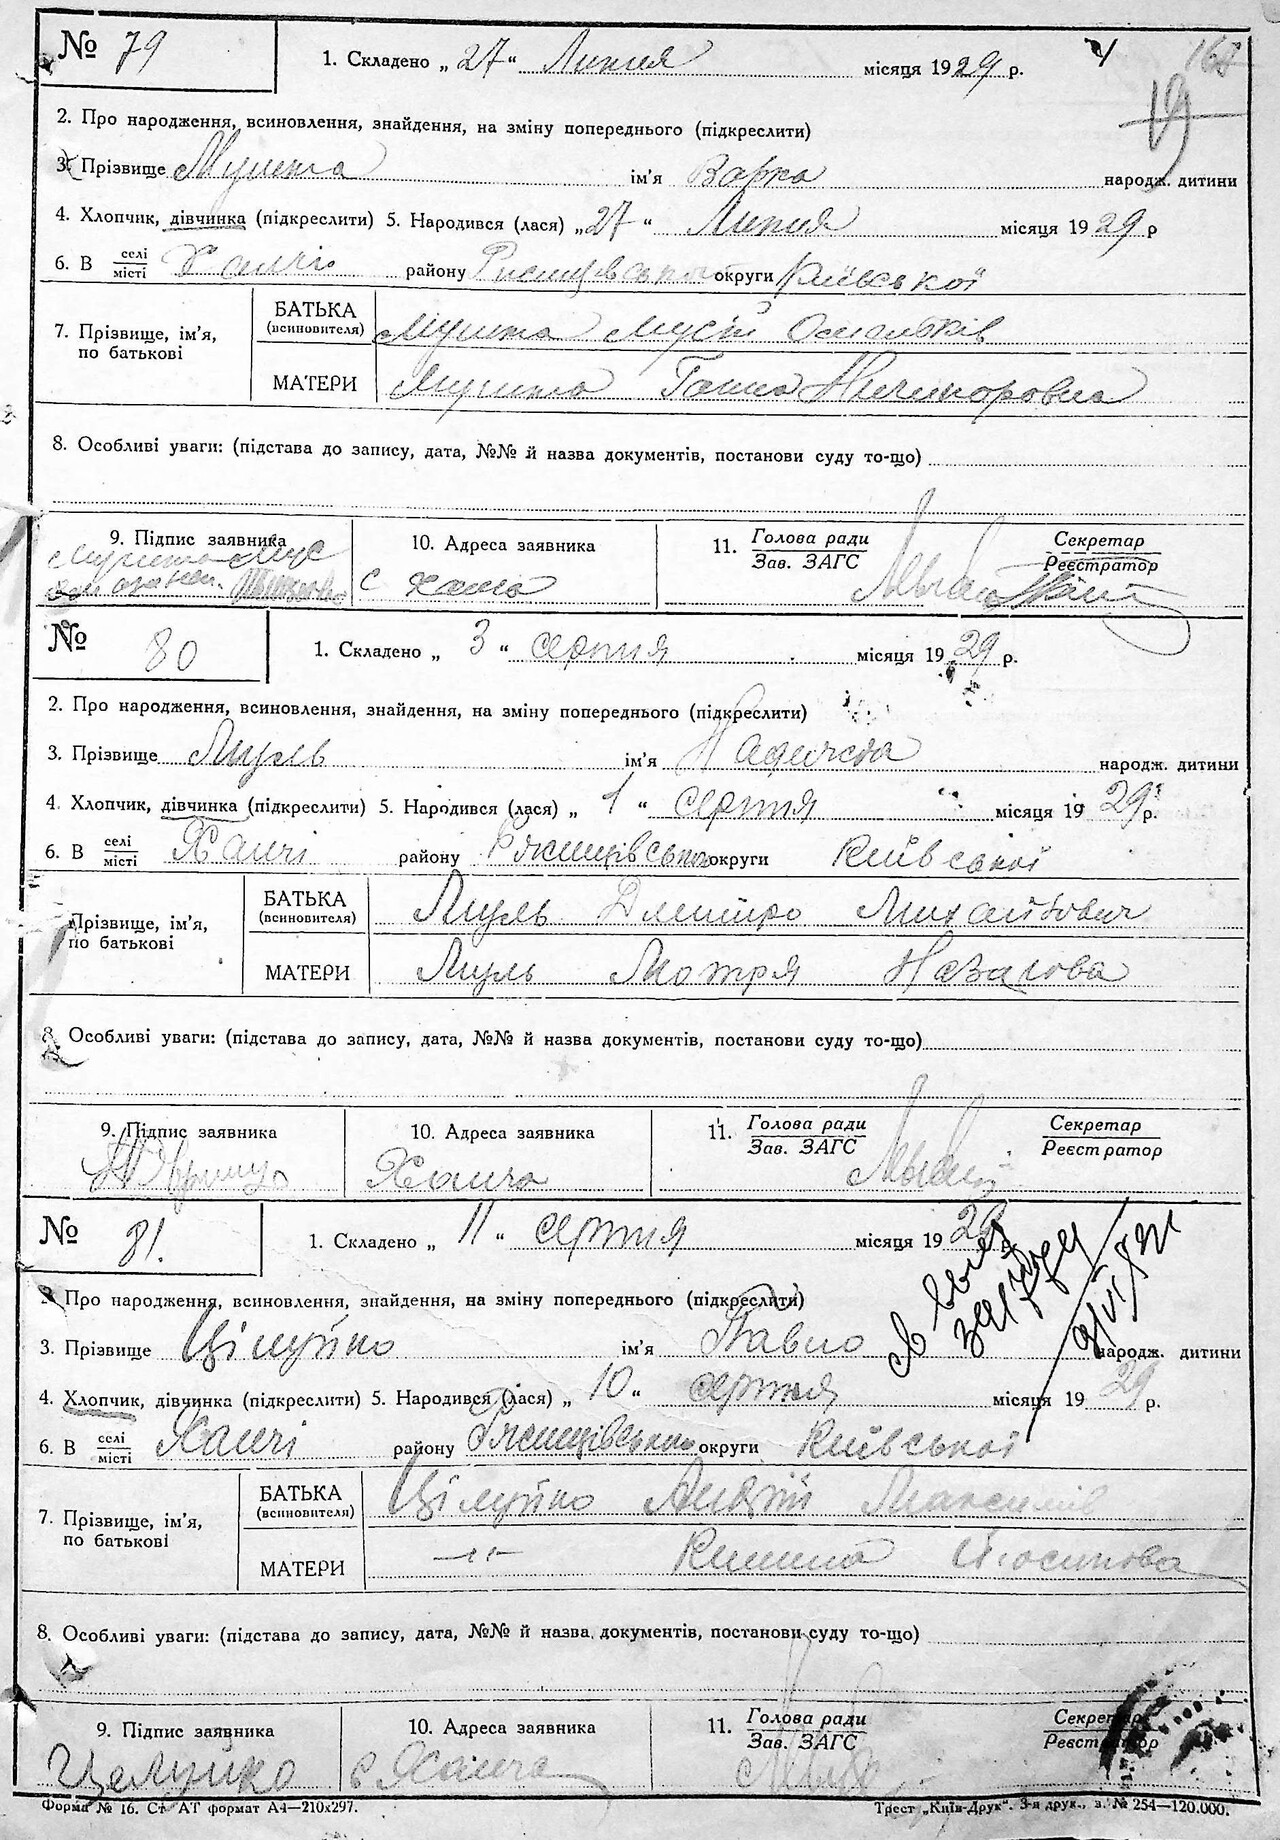 № 79
1. Складено „ 27 “ Липня місяця 1929 р.
2. Про народження, всиновлення, знайдення, на зміну попереднього (підкреслити)
19
3. Прізвище ім'я Варка народж. дитини
4. Хлопчик, дівчинка (підкреслити) 5. Народився (лася) „ 27 “ Липня місяця 1929 р
6. В селі
місті району округи Київської
7. Прізвище, ім'я,
по батькові
БАТЬКА
(всиновителя) Мусій
МАТЕРИ Ганна Ничипоровна
8. Особливі уваги: (підстава до запису, дата, №№ й назва документів, постанови суду то-що)
9. Підпис заявника
10. Адреса заявника
с
11. Голова ради
Зав. ЗАГС
Секретар
Реєстратор
№ 80
1. Складено „ 3 “ серпня місяця 1929 р.
2. Про народження, всиновлення, знайдення, на зміну попереднього (підкреслити)
3. Прізвище ім'я народж. дитини
4. Хлопчик, дівчинка (підкреслити) 5. Народився (лася) „ 1 “ серпня місяця 1929 р.
6. В селі
місті Халчі району округи Київської
Прізвище, ім'я,
по батькові
БАТЬКА
(всиновителя) Дмитро Михайлович
МАТЕРИ Мотря Назарова
8. Особливі уваги: (підстава до запису, дата, №№ й назва документів, постанови суду то-що)
9. Підпис заявника
10. Адреса заявника
Халча
11. Голова ради
Зав. ЗАГС
Секретар
Реєстратор
№ 81.
1. Складено „ 11 “ серпня місяця 1929 р.
2. Про народження, всиновлення, знайдення, на зміну попереднього (підкреслити)
3. Прізвище Цілуйко ім'я Павло народж. дитини
4. Хлопчик, дівчинка (підкреслити) 5. Народився (лася) „ 10 “ серпня місяця 1929 р.
6. В селі
місті Халчі району округи Київської
7. Прізвище, ім'я,
по батькові
БАТЬКА
(всиновителя) Цілуйко Андрій Максимів
МАТЕРИ —"— Йосипова
8. Особливі уваги: (підстава до запису, дата, №№ й назва документів, постанови суду то-що)
9. Підпис заявника
Целуйко
10. Адреса заявника
с Халча
11. Голова ради
Зав. ЗАГС
Секретар
Реєстратор
Форма № 16. Ст. АТ формат А4—210х297.
Трест „Київ-Друк“. 3-я друк., з. № 254—120.000.